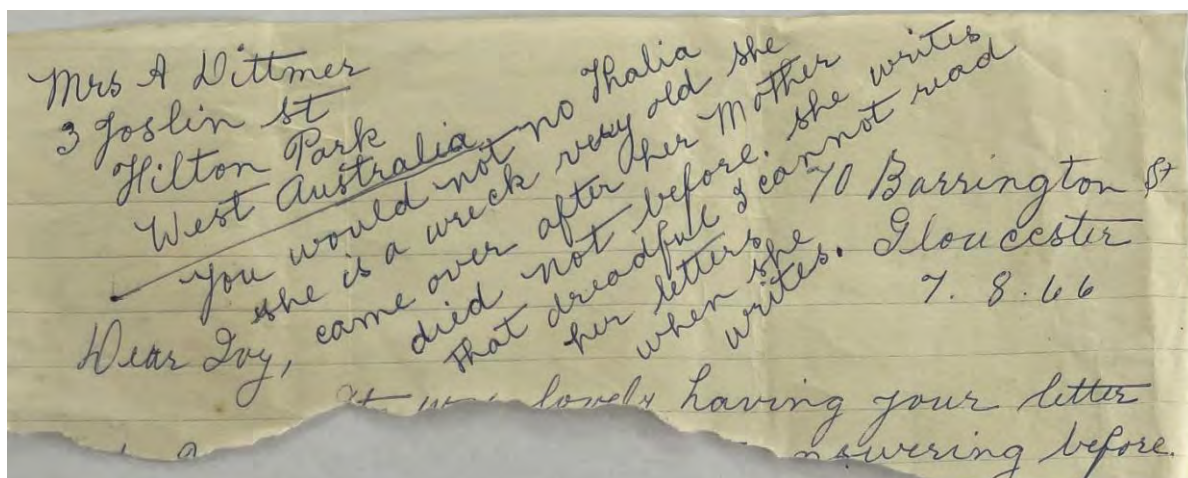 Mrs A Dittmer
3 Joslin St
Hilton Park
West Australia
You would not no Thalia
she is a wreck very old she
came over after her Mother
died not before. she writes
that dreadful I cannot read
her letters
when she
writes.
70 Barrington St
Gloucester
7.8.66
Dear Ivy,
It was lovely having your letter
answering before.